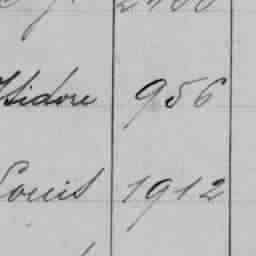 Isidore 956
Louis 1912